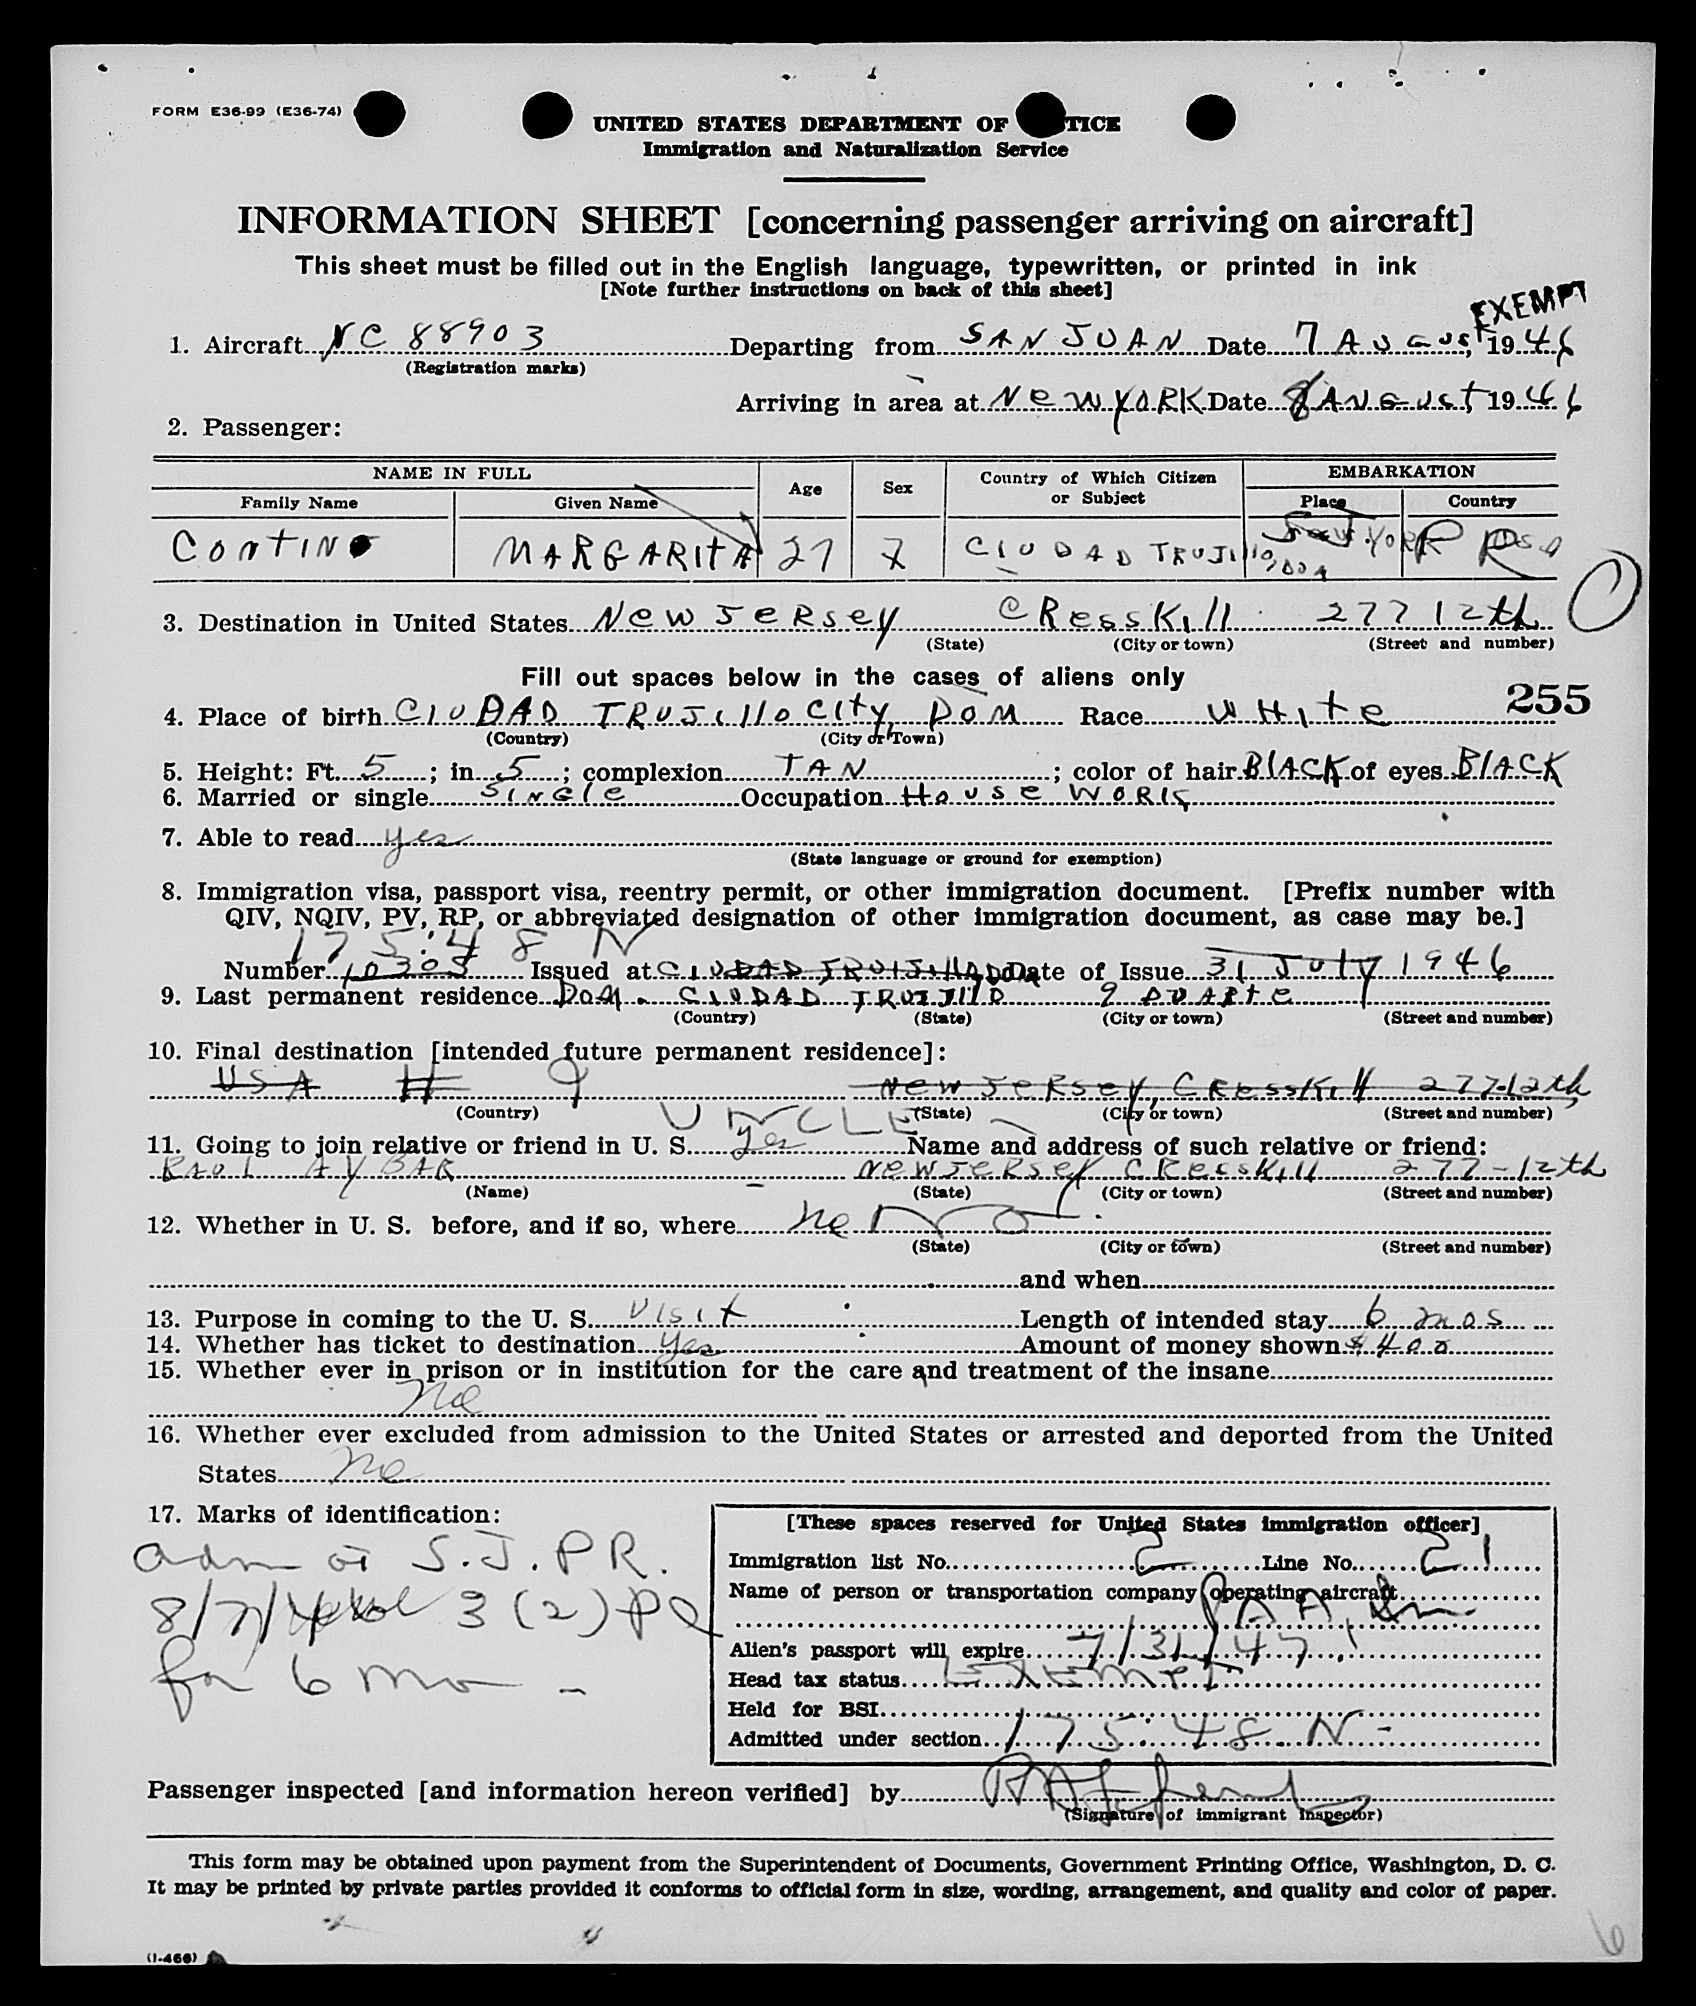 FORM E36-99 (E36-74)
UNITED STATES DEPARTMENT OF TICE
Immigration and Naturalization Service
INFORMATION SHEET [concerning passenger arriving on aircraft]
This sheet must be filled out in the English language, typewritten, or printed in ink
[Note further instructions on back of this sheet]
EXEMPT
1. Aircraft NC 88903 Departing from SAN JUAN Date 7 August, 1946
(Registration marks)
Arriving in area at New YORK Date 8 August 1946
2. Passenger:
NAME IN FULL Age Sex Country of Which Citizen or Subject EMBARKATION
Family Name Given Name Place Country
Contino MARGARITA 27 CIUDAD TRUJillo, PR
3. Destination in United States New Jersey CRessKill 277 12th
(State) (City or town) (Street and number)
Fill out spaces below in the cases of aliens only
255
4. Place of birth CIUDAD TRUJillo City, DOM Race White
(Country) (City or Town)
5. Height: Ft. 5; in. 5; complexion TAN; color of hair BlACK of eyes BlACK
6. Married or single Single Occupation House WORK
7. Able to read yes
(State language or ground for exemption)
8. Immigration visa, passport visa, reentry permit, or other immigration document. [Prefix number with
QIV, NQIV, PV, RP, or abbreviated designation of other immigration document, as case may be.]
175:48 N
Number 10305 Issued at CIUDAD TRUJillo Date of Issue 31 July 1946
9. Last permanent residence Dom. CIUDAD TRUJIllo 9 DUARTE
(Country) (State) (City or town) (Street and number)
10. Final destination [intended future permanent residence]:
USA New Jersey, CRessKill 277-12th
(Country) (State) (City or town) (Street and number)
UNCLE
11. Going to join relative or friend in U. S. yes Name and address of such relative or friend:
Raol AYBAR New Jersey CRessKill 277-12th
(Name) (State) (City or town) (Street and number)
12. Whether in U. S. before, and if so, where no
(State) (City or town) (Street and number)
and when
13. Purpose in coming to the U. S. Visit Length of intended stay 6 mos
14. Whether has ticket to destination yes Amount of money shown $400
15. Whether ever in prison or in institution for the care and treatment of the insane
no
16. Whether ever excluded from admission to the United States or arrested and deported from the United
States no
17. Marks of identification:
adm at S.J.PR.
8/7/46 3(2)
for 6 mo -
[These spaces reserved for United States immigration officer]
Immigration list No. 2 Line No. 21
Name of person or transportation company operating aircraft
PAA
Alien's passport will expire 7/31/47
Head tax status Exempt
Held for BSI
Admitted under section 175:48 N -
Passenger inspected [and information hereon verified] by
(Signature of immigrant inspector)
This form may be obtained upon payment from the Superintendent of Documents, Government Printing Office, Washington, D. C.
It may be printed by private parties provided it conforms to official form in size, wording, arrangement, and quality and color of paper.
(I-466)
6